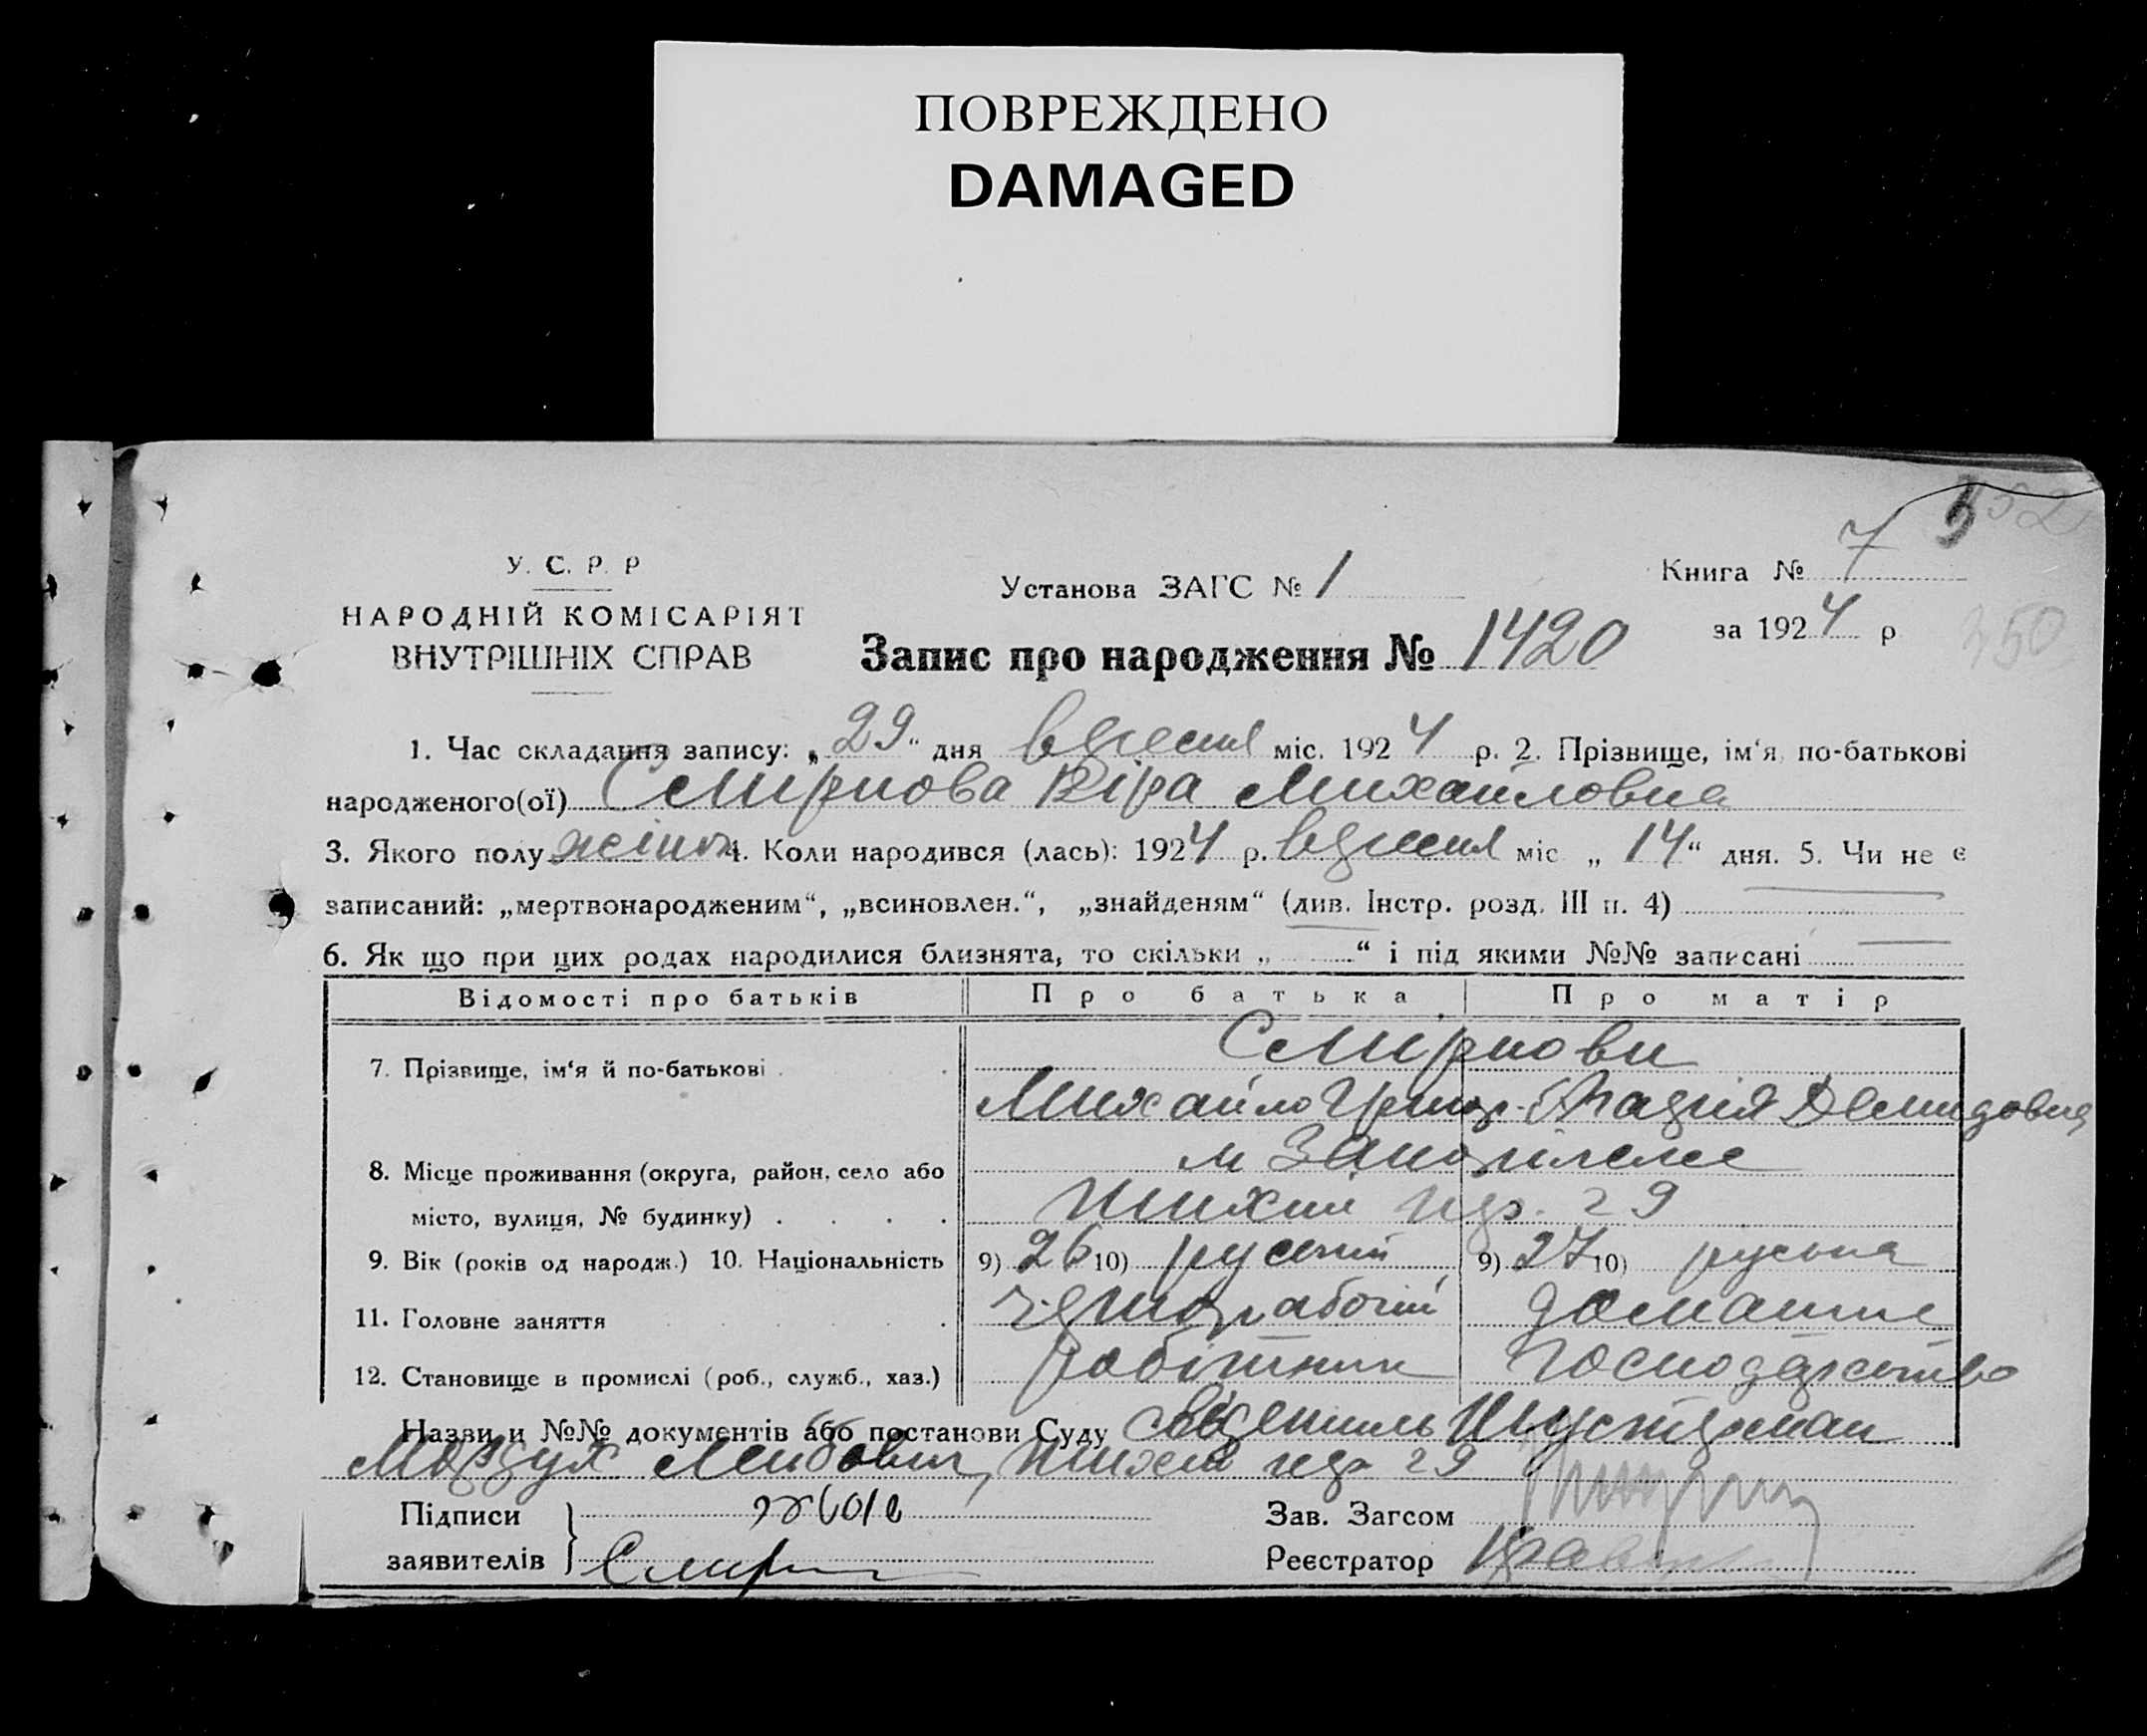 ПОВРЕЖДЕНО
DAMAGED
У. С. Р. Р
НАРОДНІЙ КОМІСАРІЯТ
ВНУТРІШНІХ СПРАВ
Установа ЗАГС № 1
Книга № 7
за 1924 р
350
Запис про народження № 1420
1. Час складання запису: „29“ дня вересня міс. 1924 р. 2. Прізвище, ім‘я, по-батькові
народженого(ої) Смирнова Віра Михайловна
3. Якого полу жіноч 4. Коли народився (лась): 1924 р. вересня міс „14“ дня. 5. Чи не є
записаний: „мертвонародженим“, „всиновлен.“, „знайденям“ (див. Інстр. розд. III п. 4)
6. Як що при цих родах народилися близнята, то скільки „ “ і під якими №№ записані
Відомості про батьків Про батька Про матір
7. Прізвище, ім‘я й по-батькові Смирнови
Михайло Григор. Демидовна
8. Місце проживання (округа, район, село або
місто, вулиця, № будинку) . . . . 29
9. Вік (років од народж.) 10. Національність 9) 26 10) руський 9) 27 10) руська
11. Головне заняття чернорабочий домашнє
12. Становище в промислі (роб., служб., хаз.) робітник господарство
Назви и №№ документів або постанови Суду Шустерман
29
Підписи
заявителів
Смирн
Зав. Загсом
Реєстратор